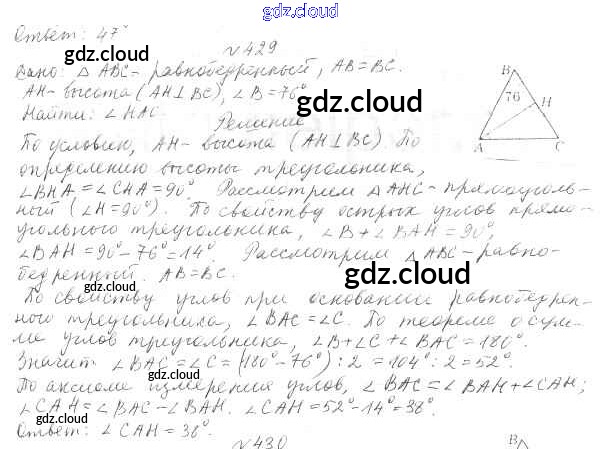 gdz.cloud
Ответ: 47°
gdz.cloud
№429
Дано: △ABC - равнобедренный, AB=BC.
AH - высота (AH⊥BC), ∠B=76°
gdz.cloud
Найти: ∠HAC
Решение
B
76
H
A
C
По условию, AH - высота (AH⊥BC). По
определению высоты треугольника,
gdz.cloud
∠BHA=∠CHA=90°. Рассмотрим △AHC - прямоуголь-
ный (∠H=90°). По свойству острых углов прямо-
угольного треугольника, ∠B+∠BAH=90°.
gdz.cloud
∠BAH=90°-76°=14°. Рассмотрим △ABC - равно-
бедренный. AB=BC.
gdz.cloud
По свойству углов при основании равнобедрен-
ного треугольника, ∠BAC=∠C. По теореме о сум-
gdz.cloud
ме углов треугольника, ∠B+∠C+∠BAC=180°.
Значит: ∠BAC=∠C=(180°-76°):2=104°:2=52°.
gdz.cloud
По аксиоме измерения углов, ∠BAC=∠BAH+∠CAH;
∠CAH=∠BAC-∠BAH. ∠CAH=52°-14°=38°.
gdz.cloud
gdz.cloud
Ответ: ∠CAH=38°.
№430
B
gdz.cloud